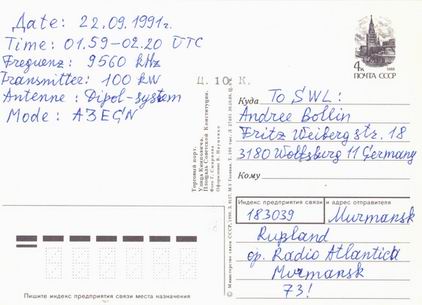 Дате: 22.09.1991г.
Time: 01.59-02.20 UTC
Frequenz: 9560 kHz
Transmitter: 100 kW
Antenne: Dipol-system
Mode: A3EGN
Ц. 10 К.
4к
1988
ПОЧТА СССР
Куда To SWL:
Andree Bollin
Fritz Weiberg str. 18
3180 Wolfsburg 11 Germany
Кому
Торговый порт.
Улица Книповича.
Площадь Советской Конституции.
Индекс предприятия связи и адрес отправителя
183039 Murmansk
Rußland
op. Radio Atlantica
Murmansk
73!
Пишите индекс предприятия связи места назначения